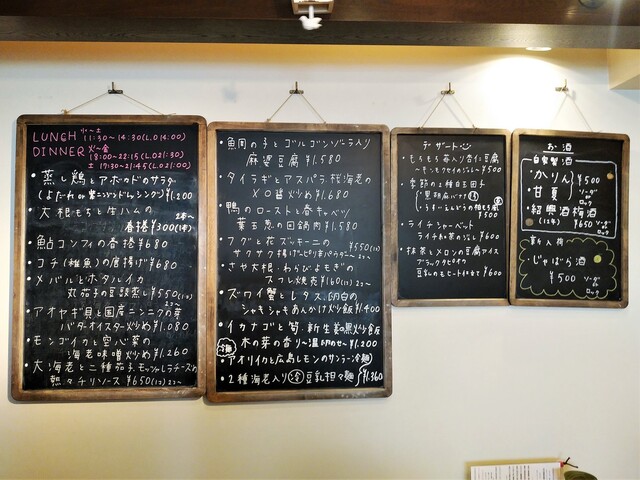 LUNCH 火〜土 11:30〜14:30(L.O 14:00)
DINNER 火〜金 18:00〜22:15(L.O 21:30)
土 17:30〜21:45(L.O 21:00)
・蒸し鶏とアボカドのサラダ
ドレッシング) ¥1.200
・大根もちと生ハムの 2本〜
春捲 ¥300(1本)
・鮎コンフィの春捲 ¥680
・コチ(雑魚)の唐揚げ ¥680
・メバルとホタルイカ
丸茄子の豆鼓蒸し ¥550(1コ) 2コ〜
・アオヤギ貝と国産ニンニクの芽
バターオイスター炒め ¥1.080
・モンゴイカと空心菜の
海老味噌炒め ¥1.260
・大海老と二種茄子、モッツァレラチーズの
熱々チリソース ¥650(1コ) 2コ〜
・魚周の子とゴルゴンゾーラ入り
麻婆豆腐 ¥1.580
・タイラギとアスパラ、桜海老の
XO醤炒め ¥1.680
・鴨のローストと春キャベツ
葉玉葱の回鍋肉 ¥1.580
・フグと花ズッキーニの ¥550(1コ)
サクサク揚げ 2コ〜
・さや大根・わらび・よもぎの
スフレ焼売 ¥160(1コ) 2コ〜
・ズワイ蟹とレタス、卵白の
シャキシャキあんかけ炒飯 ¥1.400
・イカナゴと筍、新生姜の黒炒飯
木の芽の香り〜温卵のせ〜 ¥1.200
・アオリイカと広島レモンのサンラータン冷麺
・2種海老入り 冷 豆乳担々麺 ¥1.360
デザート
・もちもち苺入り杏仁豆腐
〜キンモクセイのジュレ〜 ¥500
・季節の2種白玉団子
黒胡麻バナナ
うすいえんどうの柚もち風 ¥500
・ライチシャーベット
ライチ紅茶のジュレ ¥500
・抹茶とメロンの豆腐アイス
ブラックタピオカ
豆乳のモヒート仕立て ¥600
お・酒
自家製酒
・かりん
・甘夏 ¥500 ソーダ or ロック
・紹興酒梅酒
(12年) ¥650 ソーダ or ロック
新入荷
・じゃばら酒
¥500 ソーダ or ロック